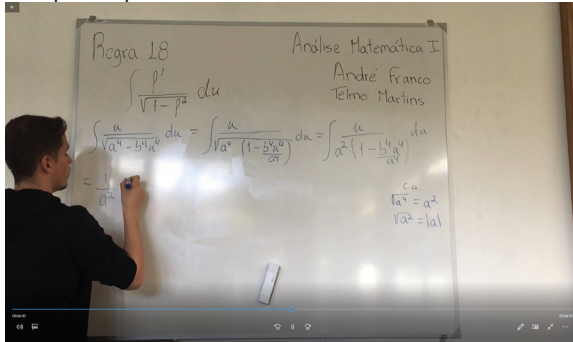 Regra 18
Análise Matemática I
André Franco
Telmo Martins
∫ p' / √(1 - p²) du
∫ u / √(a⁴ - b⁴u⁴) du = ∫ u / √(a⁴ (1 - b⁴u⁴/a⁴)) du = ∫ u / (a² (1 - b⁴u⁴/a⁴)) du
= 1/a²
c.a.
√a⁴ = a²
√a² = |a|